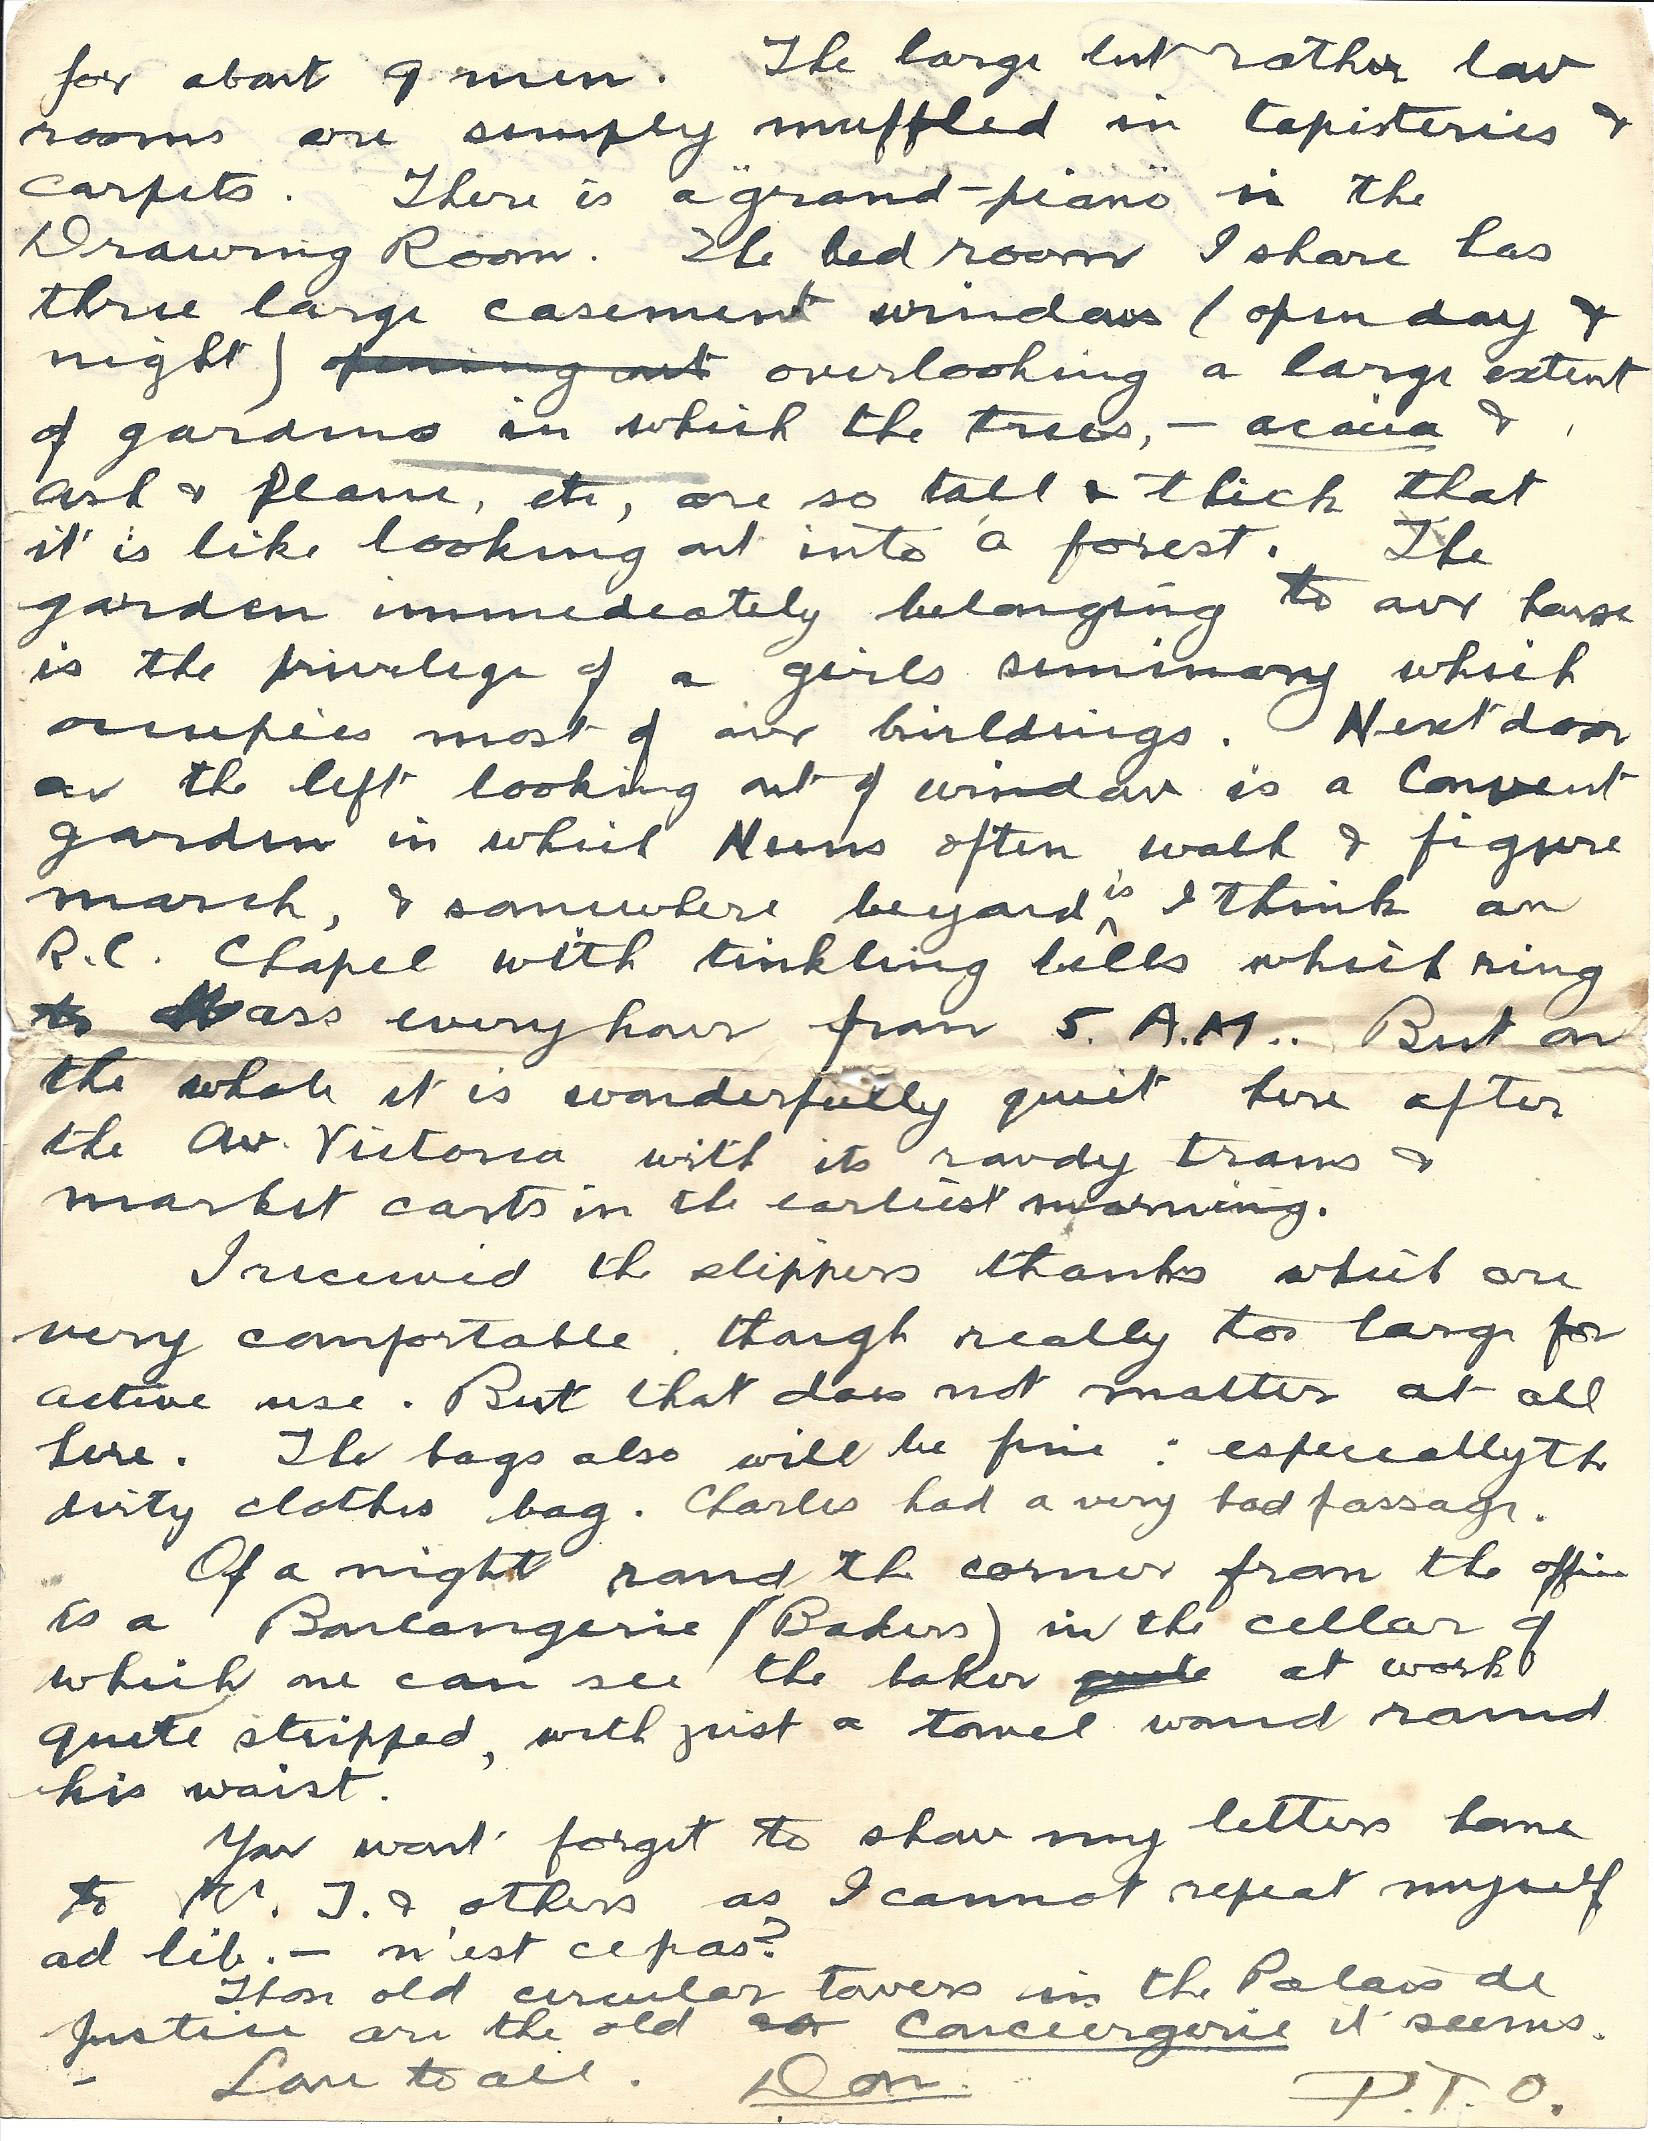 for about 9 men. The large but rather low
rooms are simply muffled in tapisteries &
carpets. There is a "grand-piano" in the
Drawing Room. The bed room I share has
three large casement windows (open day &
night) opening out overlooking a large extent
of gardens in which the trees, — acacia &
ash & Plane, etc, are so tall & thick that
it is like looking out into a forest. The
garden immediately belonging to our house
is the privilege of a girls seminary which
occupies most of our buildings. Next door
on the left looking out of window is a Convent
garden in which Nuns often walk & figure
march, & somewhere beyond is I think an
R.C. Chapel with tinkling bells which ring
to Mass every hour from 5. A.M.. But on
the whole it is wonderfully quiet here after
the Av. Victoria with its rowdy trams &
market carts in the earliest morning.
I received the slippers thanks which are
very comfortable though really too large for
active use. But that does not matter at all
here. The bags also will be fine : especially the
dirty clothes bag. Charles had a very bad passage.
Of a night round the corner from the office
is a Boulangerie (Bakers) in the cellar of
which one can see the baker quite at work
quite stripped, with just a towel wound round
his waist.
You wont forget to show my letters home
to W. J. & others as I cannot repeat myself
ad lib. — n'est ce pas?
Those old circular towers in the Palais de
Justice are the old Conciergerie it seems.
- Love to all. Don.
P.T.O.